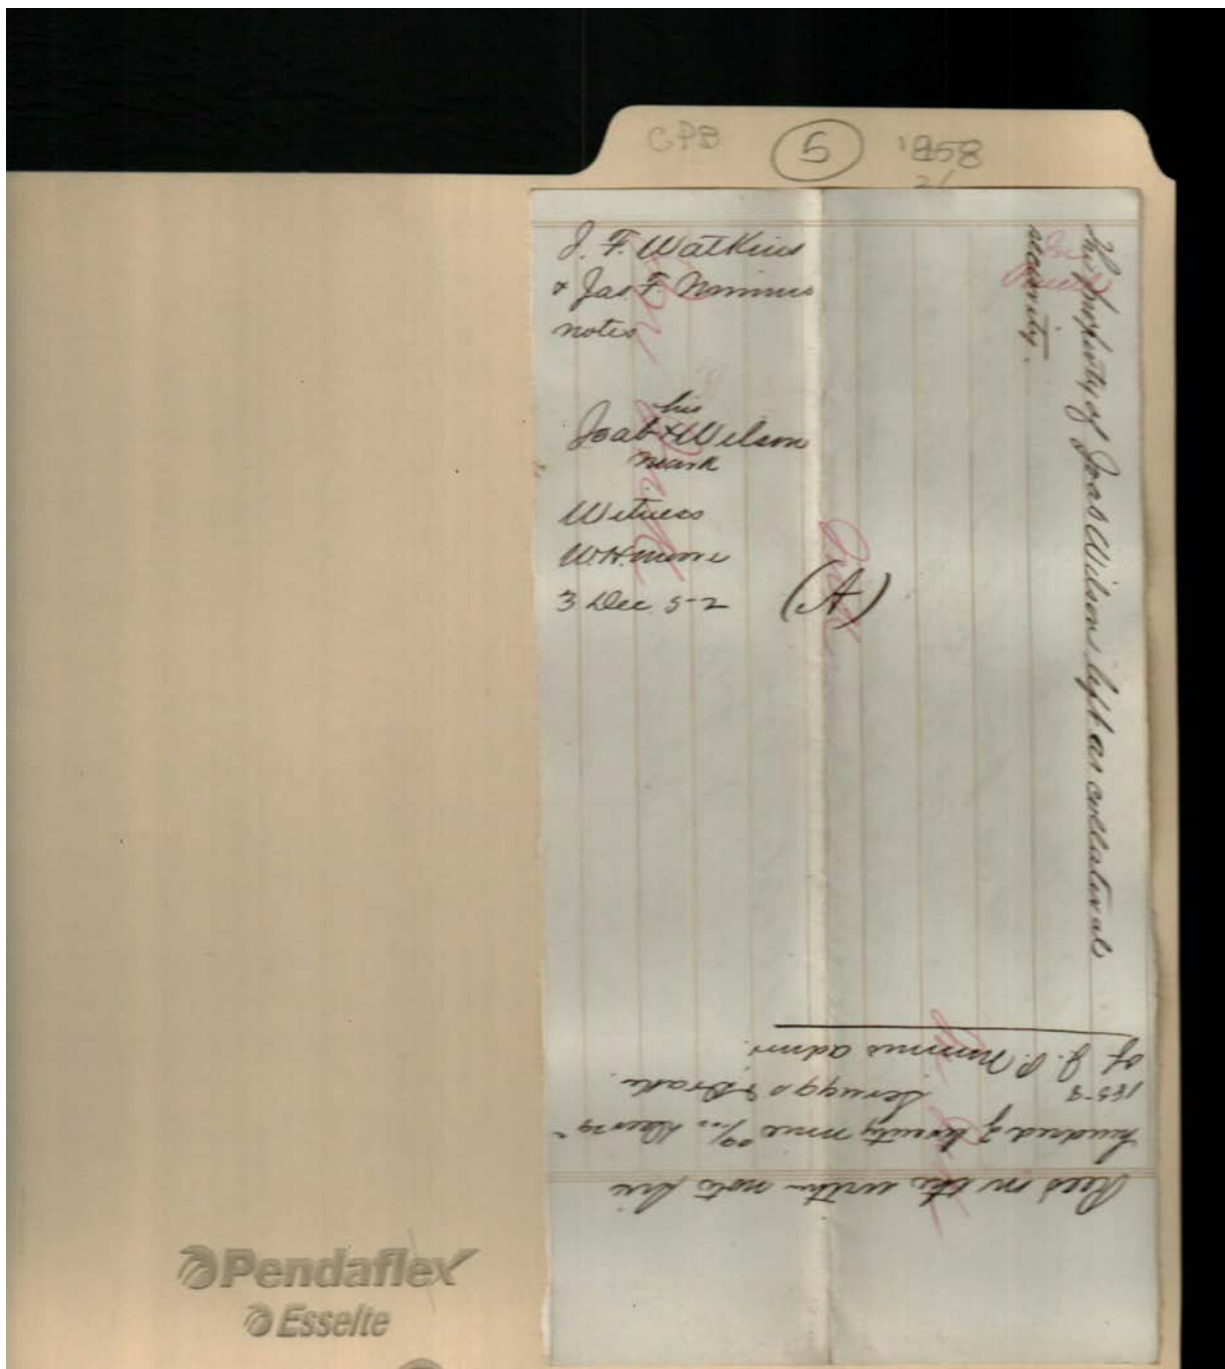 CPB 5 1858
J. F. Watkins
& Jas F. Nimmo
notes
his
Joab X Wilson
mark
Witness
W. H. Moore
3 Dec. 52
(A)
The property of Joab Wilson left as collaterals
security.
Recd on the within note five
hundred & twenty nine /100 Decr 29
1858 Scruggs & Drake
of J. P. Nimmo admr.
Pendaflex
Esselte